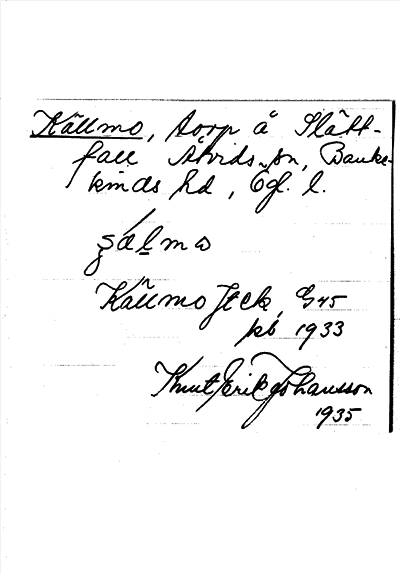 Källmo, torp å Slätt-
fall Åtvids sn, Banke-
kinds hd, Ögl. l.
Källmo
kb 1933
Knut Erik Johansson
1935